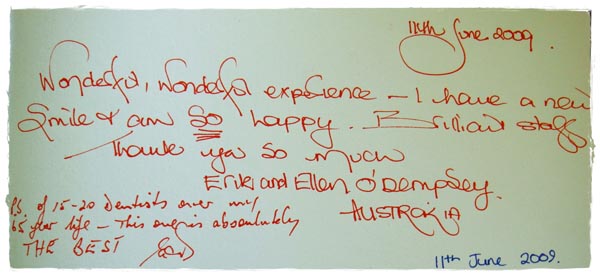 11th June 2009.
Wonderful, wonderful experience – I have a new
Smile & am SO happy. Brilliant staff
Thank you so much
Erik and Ellen O'Dempsey.
AUSTRALIA
P.S. of 15-20 Dentists over my
65 year life – This one is absolutely
THE BEST
11th June 2009.